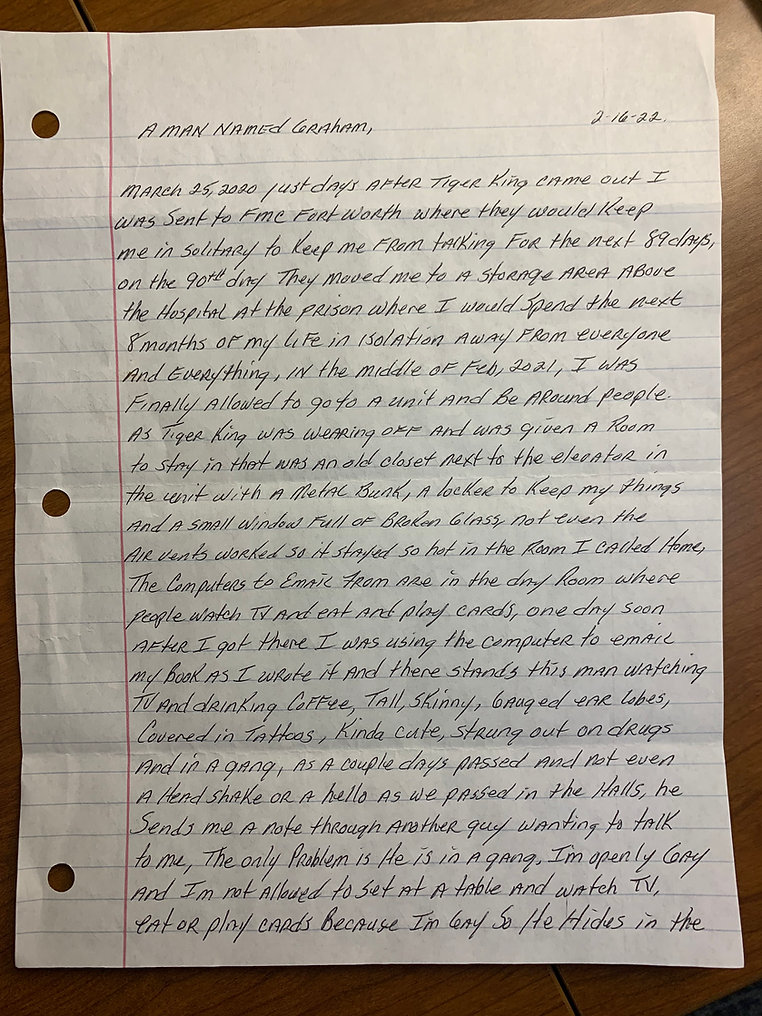 A MAN NAMED GRAHAM, 2-16-22.
MARCH 25, 2020 just days AFTER Tiger King came out I
was Sent to FMC Fort Worth where they would Keep
me in solitary to Keep me FROM talking For the next 89 days,
on the 90th day They moved me to a storage area above
the Hospital at the prison where I would Spend the next
8 months of my life in isolation away from everyone
And Everything, IN the middle of Feb, 2021, I was
Finally allowed to go to a unit and be around people.
As Tiger King was wearing off and was given a Room
to stay in that was an old closet next to the elevator in
the unit with a Metal Bunk, a locker to keep my things
And a small window Full of Broken Glass, not even the
Air vents worked so it stayed so hot in the Room I called Home,
The Computers to Email From are in the day Room where
people watch TV and eat and play cards, one day soon
AFTER I got there I was using the computer to email
my Book as I wrote it and there stands this man watching
TV and drinking Coffee, Tall, Skinny, Gauged ear lobes,
Covered in Tattoos, Kinda cute, strung out on drugs
And in a gang, as a couple days passed and not even
A Hend shake or a hello as we passed in the Halls, he
Sends me a note through another guy wanting to talk
to me, The only Problem is He is in a gang, Im openly Gay
And Im not allowed to set at a table and watch TV,
eat or play cards Because Im Gay So He Hides in the